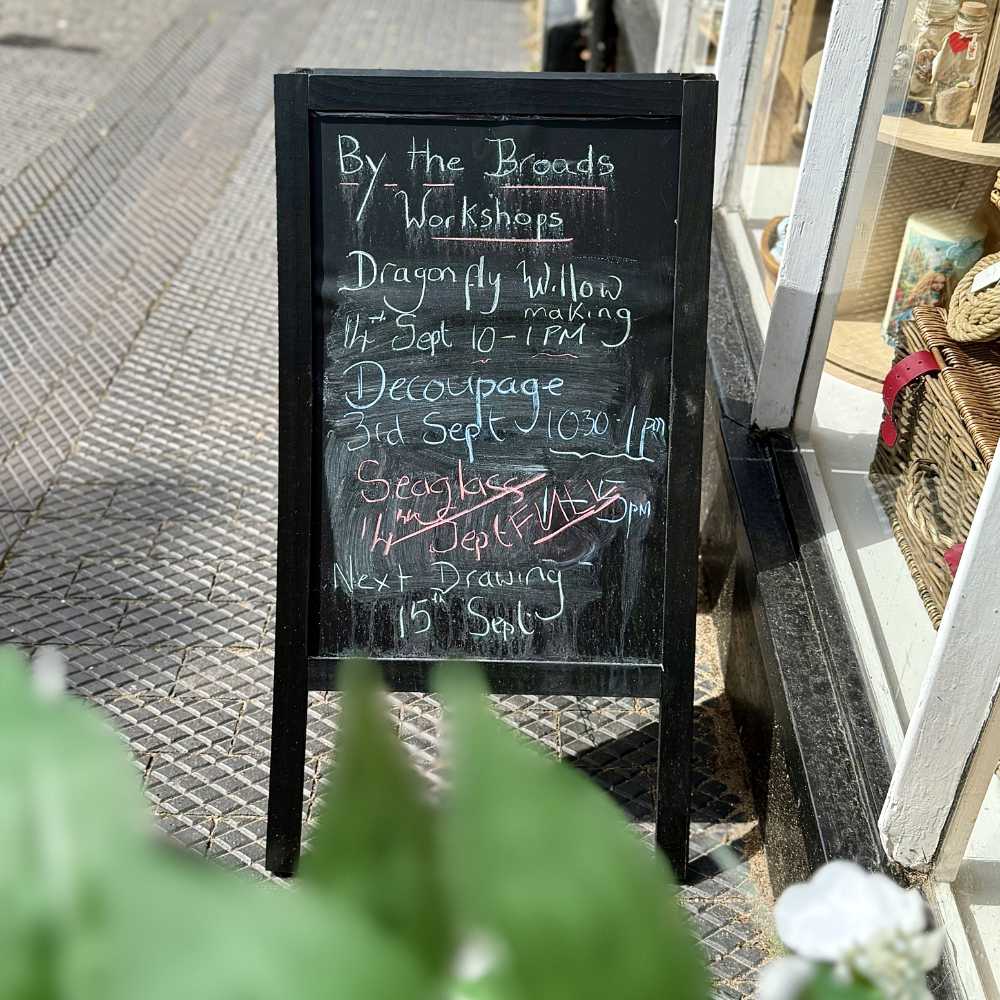 By the Broads
Workshops
Dragonfly Willow
making
14th Sept 10-1PM
Decoupage
3rd Sept 1030-1pm
Seaglass
14th Sept FULL 5pm
Next Drawing
15th Sept